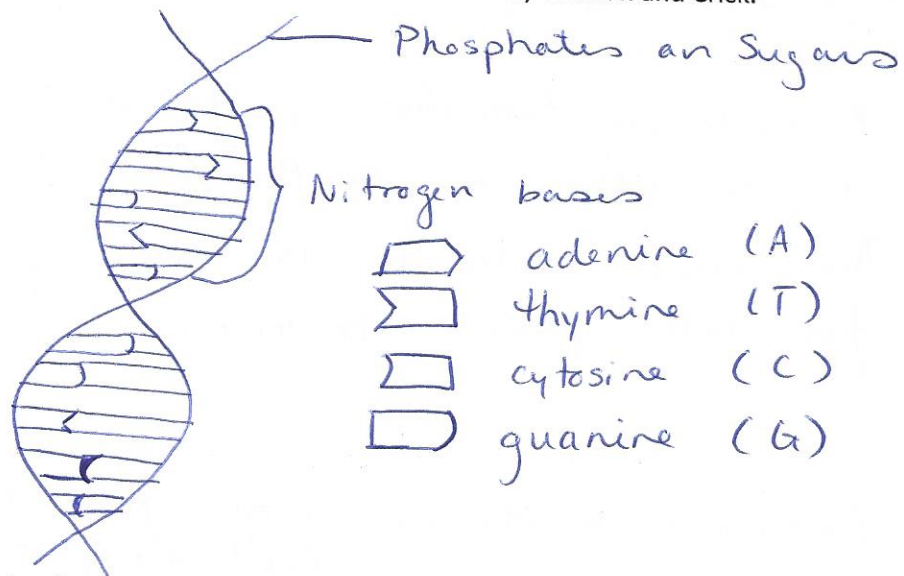 and Crick.
Phosphates an Sugars
Nitrogen bases
adenine (A)
thymine (T)
cytosine (C)
guanine (G)